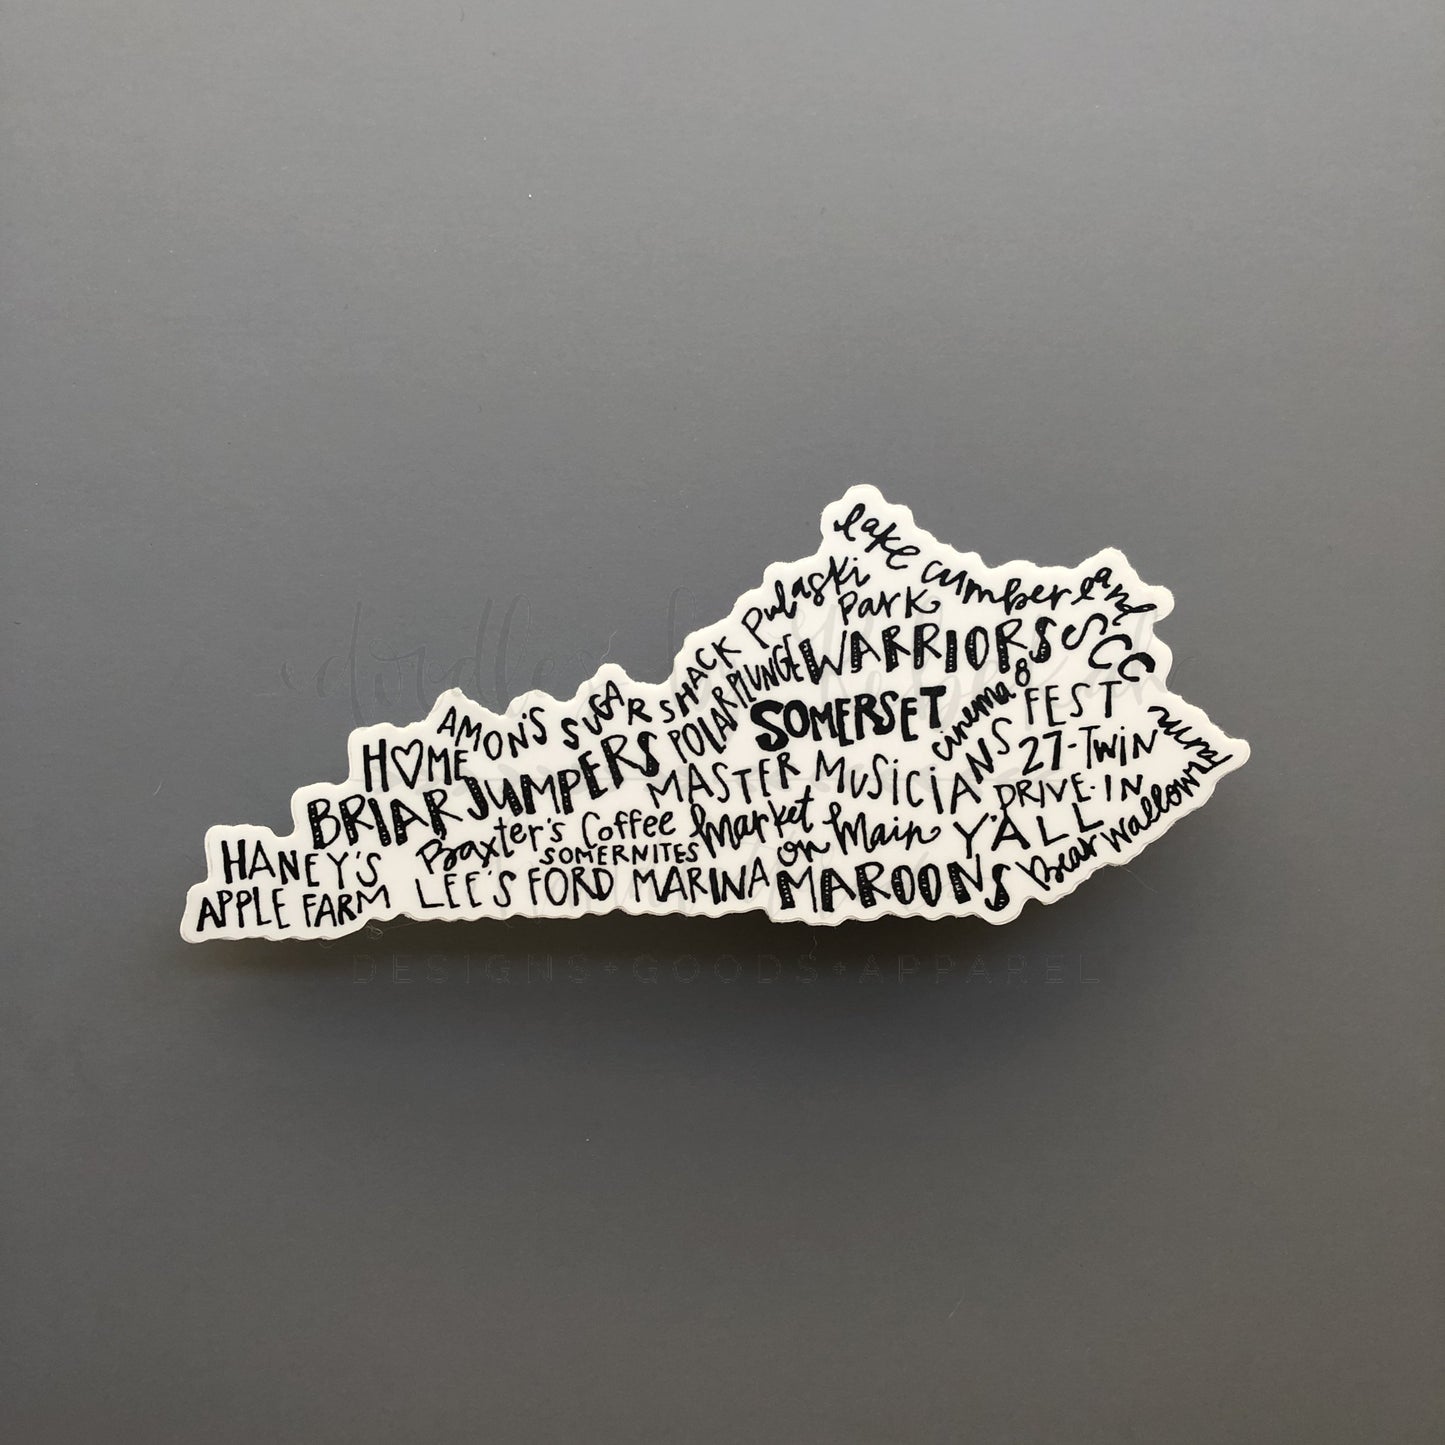 lake cumberland
Pulaski
Park
WARRIORS
SCC
SHACK
POLAR PLUNGE
SOMERSET
cinema 8
FEST
AMON'S SUGAR
HOME
JUMPERS
MASTER MUSICIANS
27-TWIN
DRIVE-IN
rural
BRIAR
Baxter's Coffee
Market
on Main
Y'ALL
Bear Wallow
HANEY'S
SOMERNITES
APPLE FARM
LEE'S FORD MARINA
MAROONS
DESIGNS+GOODS+APPAREL